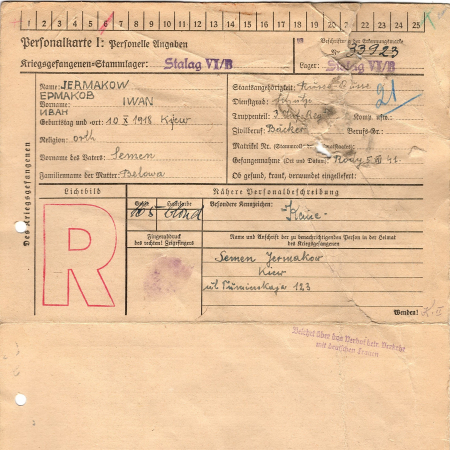 1 2 3 4 5 6 7 8 9 10 11 12 13 14 15 16 17 18 19 20 21 22 23 24 25
Personalkarte I: Personelle Angaben
Kriegsgefangenen-Stammlager: Stalag VI/B
Beschriftung der Erkennungsmarke
Nr. 33923
Lager: Stalag VI/B
Des Kriegsgefangenen
Name: JERMAKOW
ЕРМАКОВ
Vorname: IWAN
ИВАН
Geburtstag und -ort: 10 X 1918 Kijew
Religion: orth
Vorname des Vaters: Semen
Familienname der Mutter: Belowa
Staatsangehörigkeit:
Dienstgrad: Schütze
Truppenteil: Komp. usw.:
Zivilberuf: Bäcker Berufs-Gr.:
Matrikel Nr.
Gefangennahme (Ort und Datum): 41
Ob gesund, krank, verwundet eingeliefert:
21
Lichtbild
R
Nähere Personalbeschreibung
Größe Haarfarbe
165 blond
Besondere Kennzeichen:
Keine
Fingerabdruck
des rechten Zeigefingers
Name und Anschrift der zu benachrichtigenden Person in der Heimat
des Kriegsgefangenen
Semen Jermakow
Kiew
123
Wenden!
Belehrt über das Verbot betr. Verkehr
mit deutschen Frauen